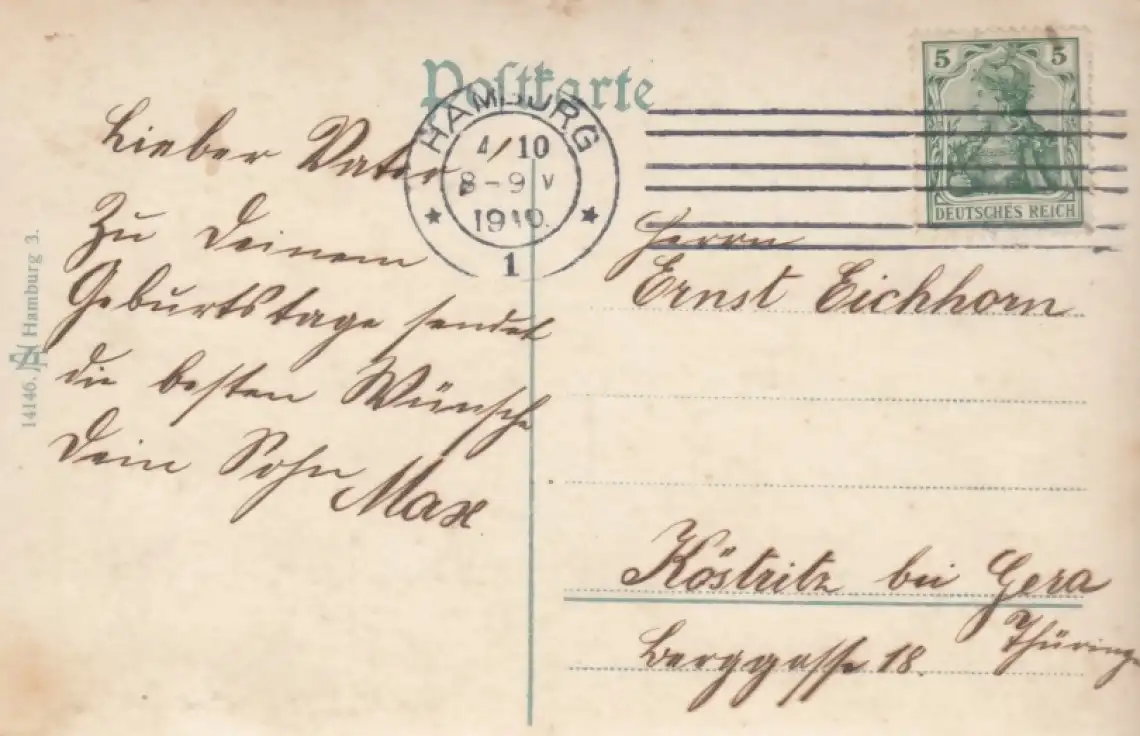 Postkarte
HAMBURG
4/10
8-9 V
1910.
1
5 5
DEUTSCHES REICH
Lieber Vater
Zu Deinem
Geburtstage sendet
die besten Wünsche
Dein Sohn
Max
Herrn
Ernst Eichhorn
Köstritz bei Gera
Thüringen
Berggasse 18.
14146. Hamburg 3.